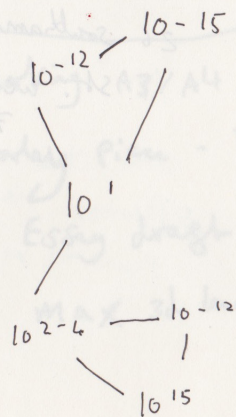 10 - 15
10⁻¹²
10¹
10²⁻⁴
10⁻¹²
10¹⁵